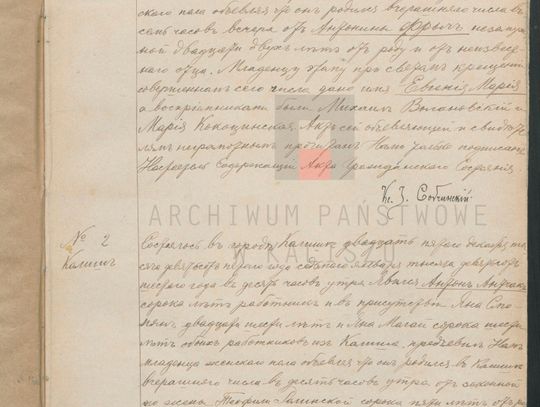 скаго пола объявляя что онъ родился вчерашняго числа въ
семь часовъ вечера отъ Антонины Фрычъ незамуж
ной двадцати двухъ лѣтъ отъ роду и отъ неизвѣст
наго отца. Младенцу этому при святомъ крещеніи
совершенномъ сего числа дано имя Евгенія Марія
а воспріемниками были Михаилъ и
Марія Кокоцинская. Актъ сей объявляющей и свидѣте
лямъ неграмотнымъ прочитанъ Нами только подписанъ
Содержащій Акты Гражданскаго Состоянія.
Кс. З. Собчинскій
ARCHIWUM PAŃSTWOWE
W KALISZU
№ 2
Калишъ
Состоялось въ городѣ Калишѣ двадцать пятаго декабря ты
сяча девятьсотъ перваго года седьмаго января тысяча девятьсотъ
втораго года въ десять часовъ утра. Явился Антонъ
сорока лѣтъ работникъ и въ присутствіи Яна
двадцати шести лѣтъ и Яна сорока шести
лѣтъ обоихъ работниковъ изъ Калиша, предъявилъ Намъ
младенца женскаго пола объявляя что онъ родился въ Калишѣ
вчерашняго числа въ десять часовъ утра отъ законной
его жены Теофили сорока пяти лѣтъ отъ ро